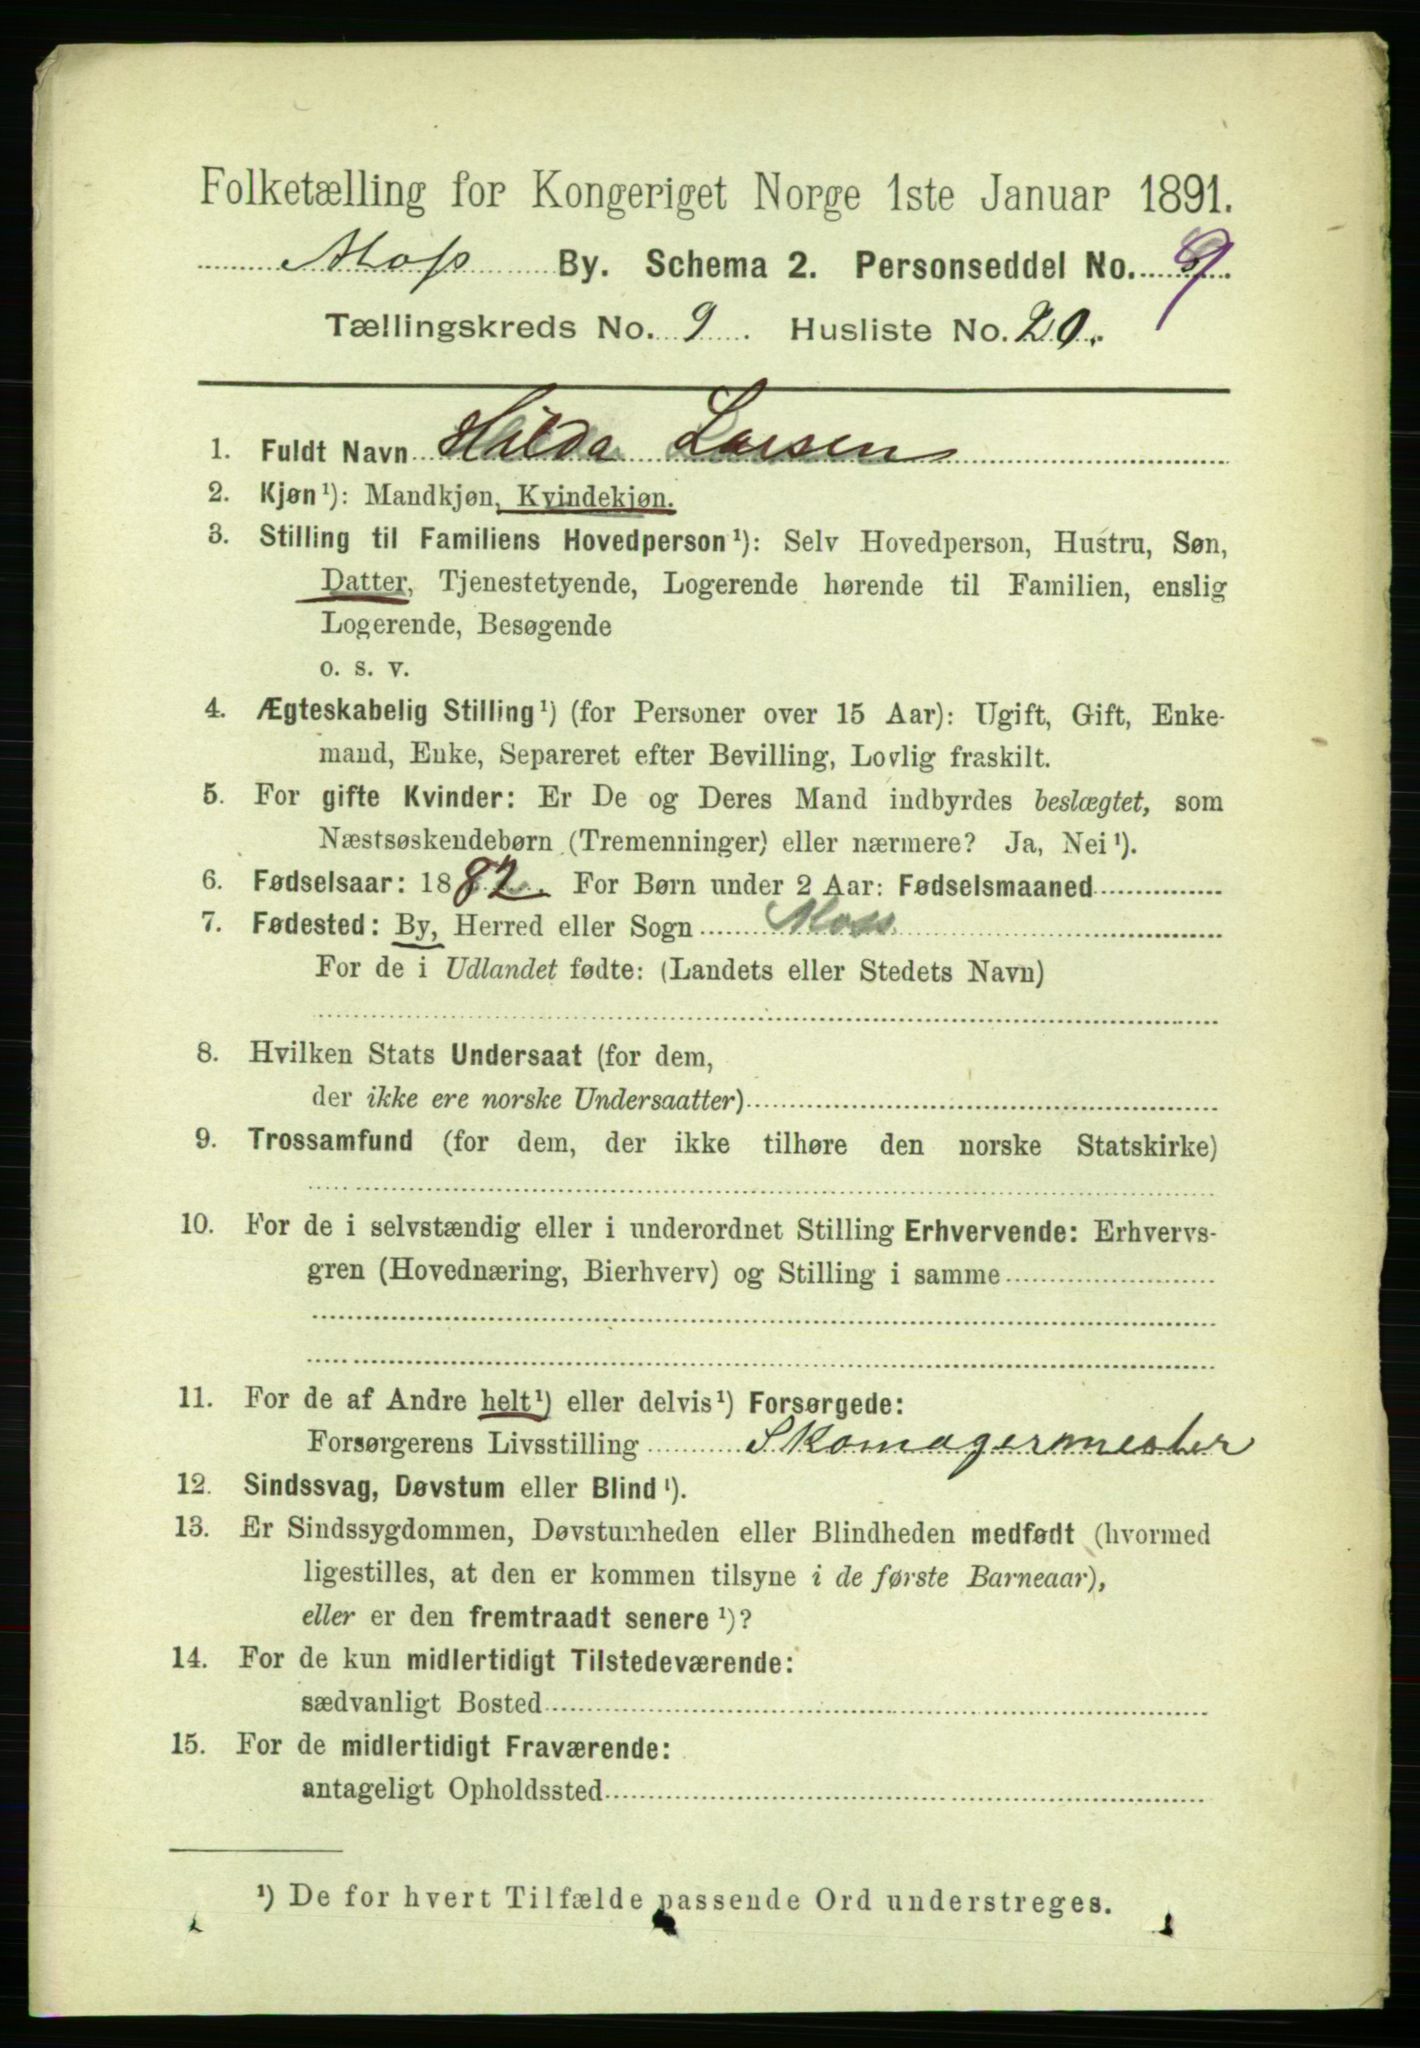 Folketælling for Kongeriget Norge 1ste Januar 1891.
Moss By. Schema 2. Personseddel No. 9.
Tællingskreds No. 9. Husliste No. 20.
1. Fuldt Navn Hilda Larsen
2. Kjøn¹): Mandkjøn, Kvindekjøn.
3. Stilling til Familiens Hovedperson¹): Selv Hovedperson, Hustru, Søn,
Datter, Tjenestetyende, Logerende hørende til Familien, enslig
Logerende, Besøgende
o. s. v.
4. Ægteskabelig Stilling¹) (for Personer over 15 Aar): Ugift, Gift, Enke-
mand, Enke, Separeret efter Bevilling, Lovlig fraskilt.
5. For gifte Kvinder: Er De og Deres Mand indbyrdes beslægtet, som
Næstsøskendebørn (Tremenninger) eller nærmere? Ja, Nei¹).
6. Fødselsaar: 1882. For Børn under 2 Aar: Fødselsmaaned
7. Fødested: By, Herred eller Sogn Moss
For de i Udlandet fødte: (Landets eller Stedets Navn)
8. Hvilken Stats Undersaat (for dem,
der ikke ere norske Undersaatter)
9. Trossamfund (for dem, der ikke tilhøre den norske Statskirke)
10. For de i selvstændig eller i underordnet Stilling Erhvervende: Erhvervs-
gren (Hovednæring, Bierhverv) og Stilling i samme
11. For de af Andre helt¹) eller delvis¹) Forsørgede:
Forsørgerens Livsstilling Skomagermester
12. Sindssvag, Døvstum eller Blind¹).
13. Er Sindssygdommen, Døvstumheden eller Blindheden medfødt (hvormed
ligestilles, at den er kommen tilsyne i de første Barneaar),
eller er den fremtraadt senere¹)?
14. For de kun midlertidigt Tilstedeværende:
sædvanligt Bosted
15. For de midlertidigt Fraværende:
antageligt Opholdssted
¹) De for hvert Tilfælde passende Ord understreges.